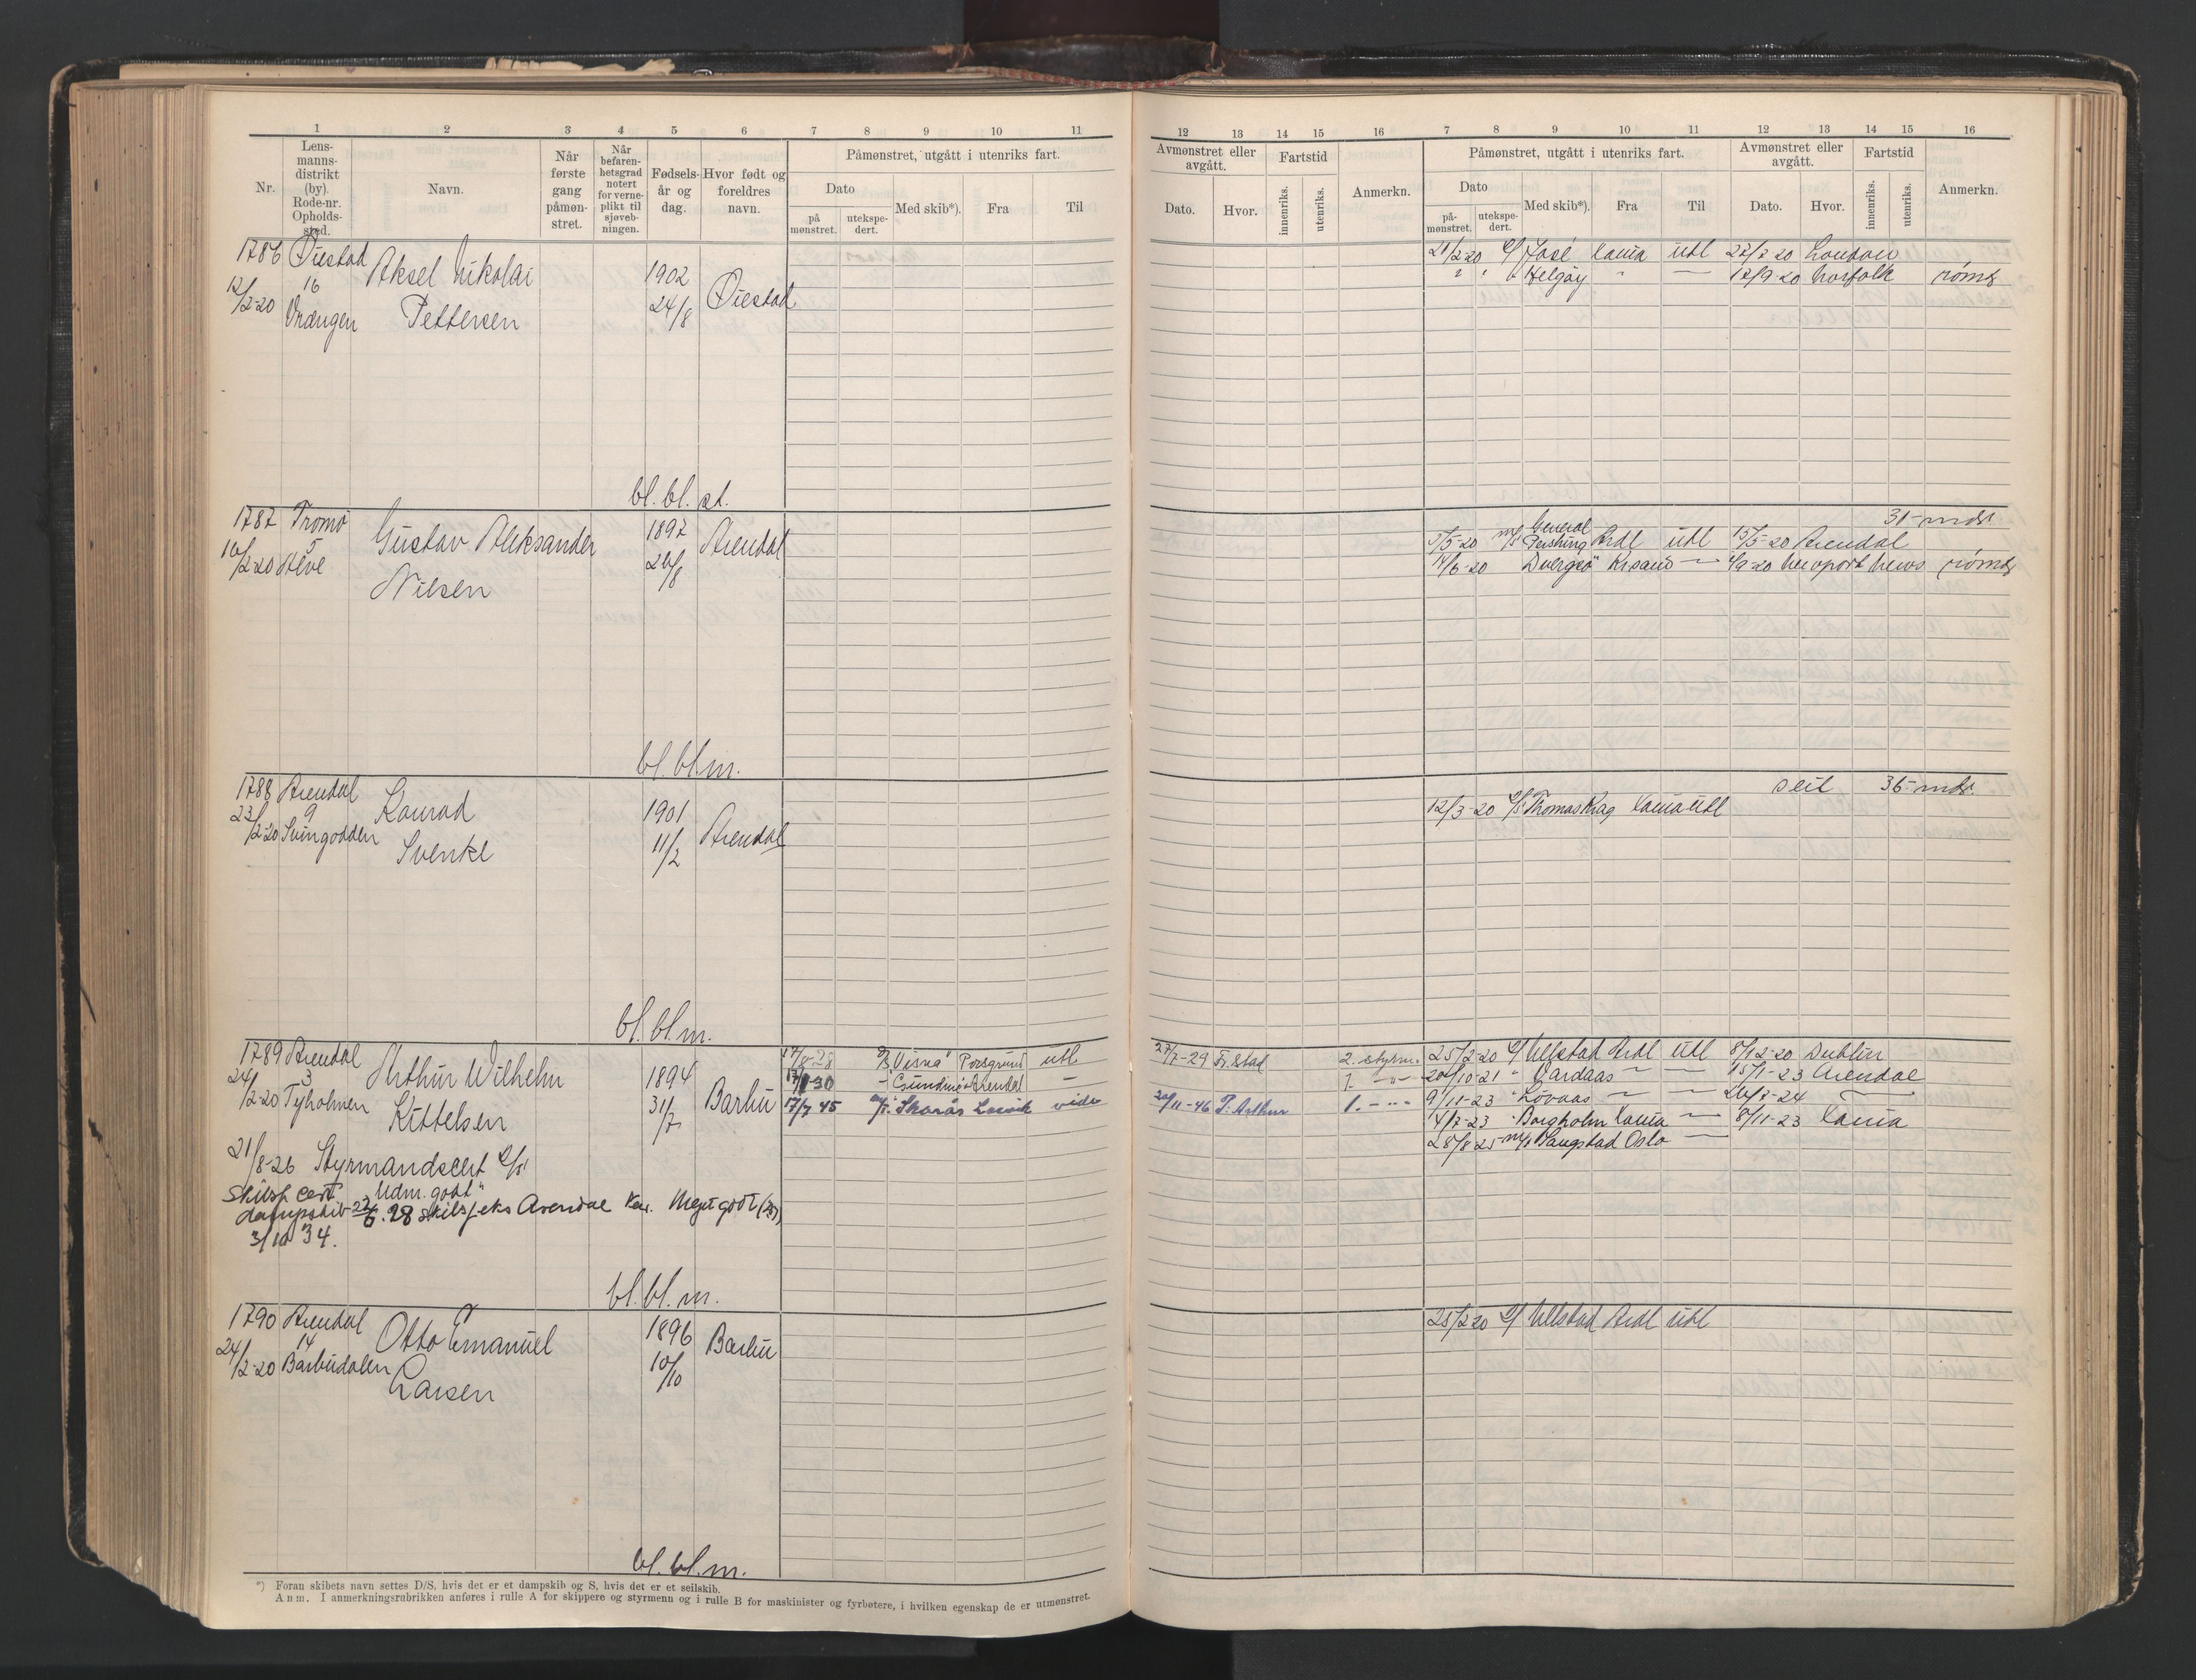 1 2 3 4 5 6 7 8 9 10 11
Nr.
Lens-
manns-
distrikt
(by).
Rode-nr.
Opholds-
sted.
Navn.
Når
første
gang
påmøn-
stret.
Når
befaren-
hetsgrad
notert
for verne-
plikt til
sjøveb-
ningen.
Fødsels-
år og
dag.
Hvor født og
foreldres
navn.
Påmønstret, utgått i utenriks fart.
Dato
på
mønstret.
utekspe-
dert.
Med skib*).
Fra
Til
1786 Øiestad
12/2-20 16
Aksel Nikolai
Pettersen
1902
24/8
Øiestad
bl. bl. st.
1787 Tromø
16/2-20 5
Gustav Aleksander
Nilsen
1897
26/8
Arendal
bl. bl. m.
1788 Arendal
23/2-20 9
Konrad
Svenke
1901
11/2
Arendal
bl. bl. m.
1789 Arendal
24/2-20 3
Tyholmen
Arthur Wilhelm
Kittelsen
1894
31/7
Barbu
"Visna" Porsgrund utl
Arendal —
17/7 45 Skarås Larvik
21/8-26 Styrmandscert
Udm. godt"
Skilsf. cert
dampskib 22/6. 28 Arendal Kar. Meget godt
3/10 34.
bl. bl. m.
1790 Arendal
24/2-20 14
Barbudalen
Otto Emanuel
Larsen
1896
10/10
Barbu
bl. bl. m.
*) Foran skibets navn settes D/S, hvis det er et dampskib og S, hvis det er et seilskib.
Anm. I anmerkningsrubrikken anføres i rulle A for skippere og styrmenn og i rulle B for maskinister og fyrbøtere, i hvilken egenskap de er utmønstret.
12 13 14 15 16 7 8 9 10 11 12 13 14 15 16
Avmønstret eller
avgått.
Fartstid
Dato.
Hvor.
innenriks.
utenriks.
Anmerkn.
Påmønstret, utgått i utenriks fart.
Dato
på-
mønstret.
utekspe-
dert.
Med skib*).
Fra
Til
Avmønstret eller
avgått.
Fartstid
Dato.
Hvor.
innenriks.
utenriks.
Anmerkn.
21/2-20 José utl London
" " Helgøy " — 12/9-20 Norfolk rømt
31 - mdr
5/5-20 m/s General Pershing Ardl utl 15/5-20 Arendal
14/6-20 "Dvergsö" Krsand — Newport News rømt
seil 36 - mdr.
12/3-20 Thomas Krag utl
Fr.stad 2. styrm.
1. - " -
20/11-46 P. Arthur 1. - " -
25/2-20 Ullstad Ardl utl 8/12-20 Dublin
20/10-21 " Vardaas — — 15/1-23 Arendal
9/11-23 " Lövaas — —
Borgholm — 8/11-23
28/8-25 m/s Oslo —
25/2-20 Ullstad Ardl utl